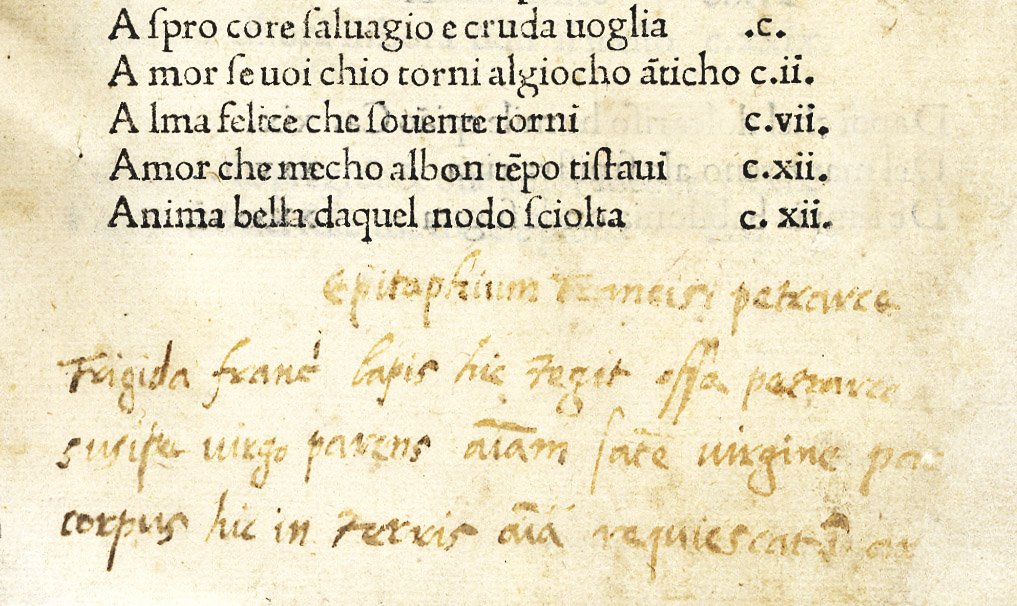 A ſpro core ſaluagio e cruda uoglia .c.
A mor ſe uoi chio torni algiocho āticho c.ii.
A lma felice che ſouente torni c.vii.
Amor che mecho albon tēpo tiſtaui c.xii.
Anima bella daquel nodo ſciolta c. xii.
Epitaphium Francisi petrarce
Frigida franc lapis hic tegit oſſa petrarce
suscipe uirgo parens aīam ſate uirgine
corpus hic in terris aīa requiescat